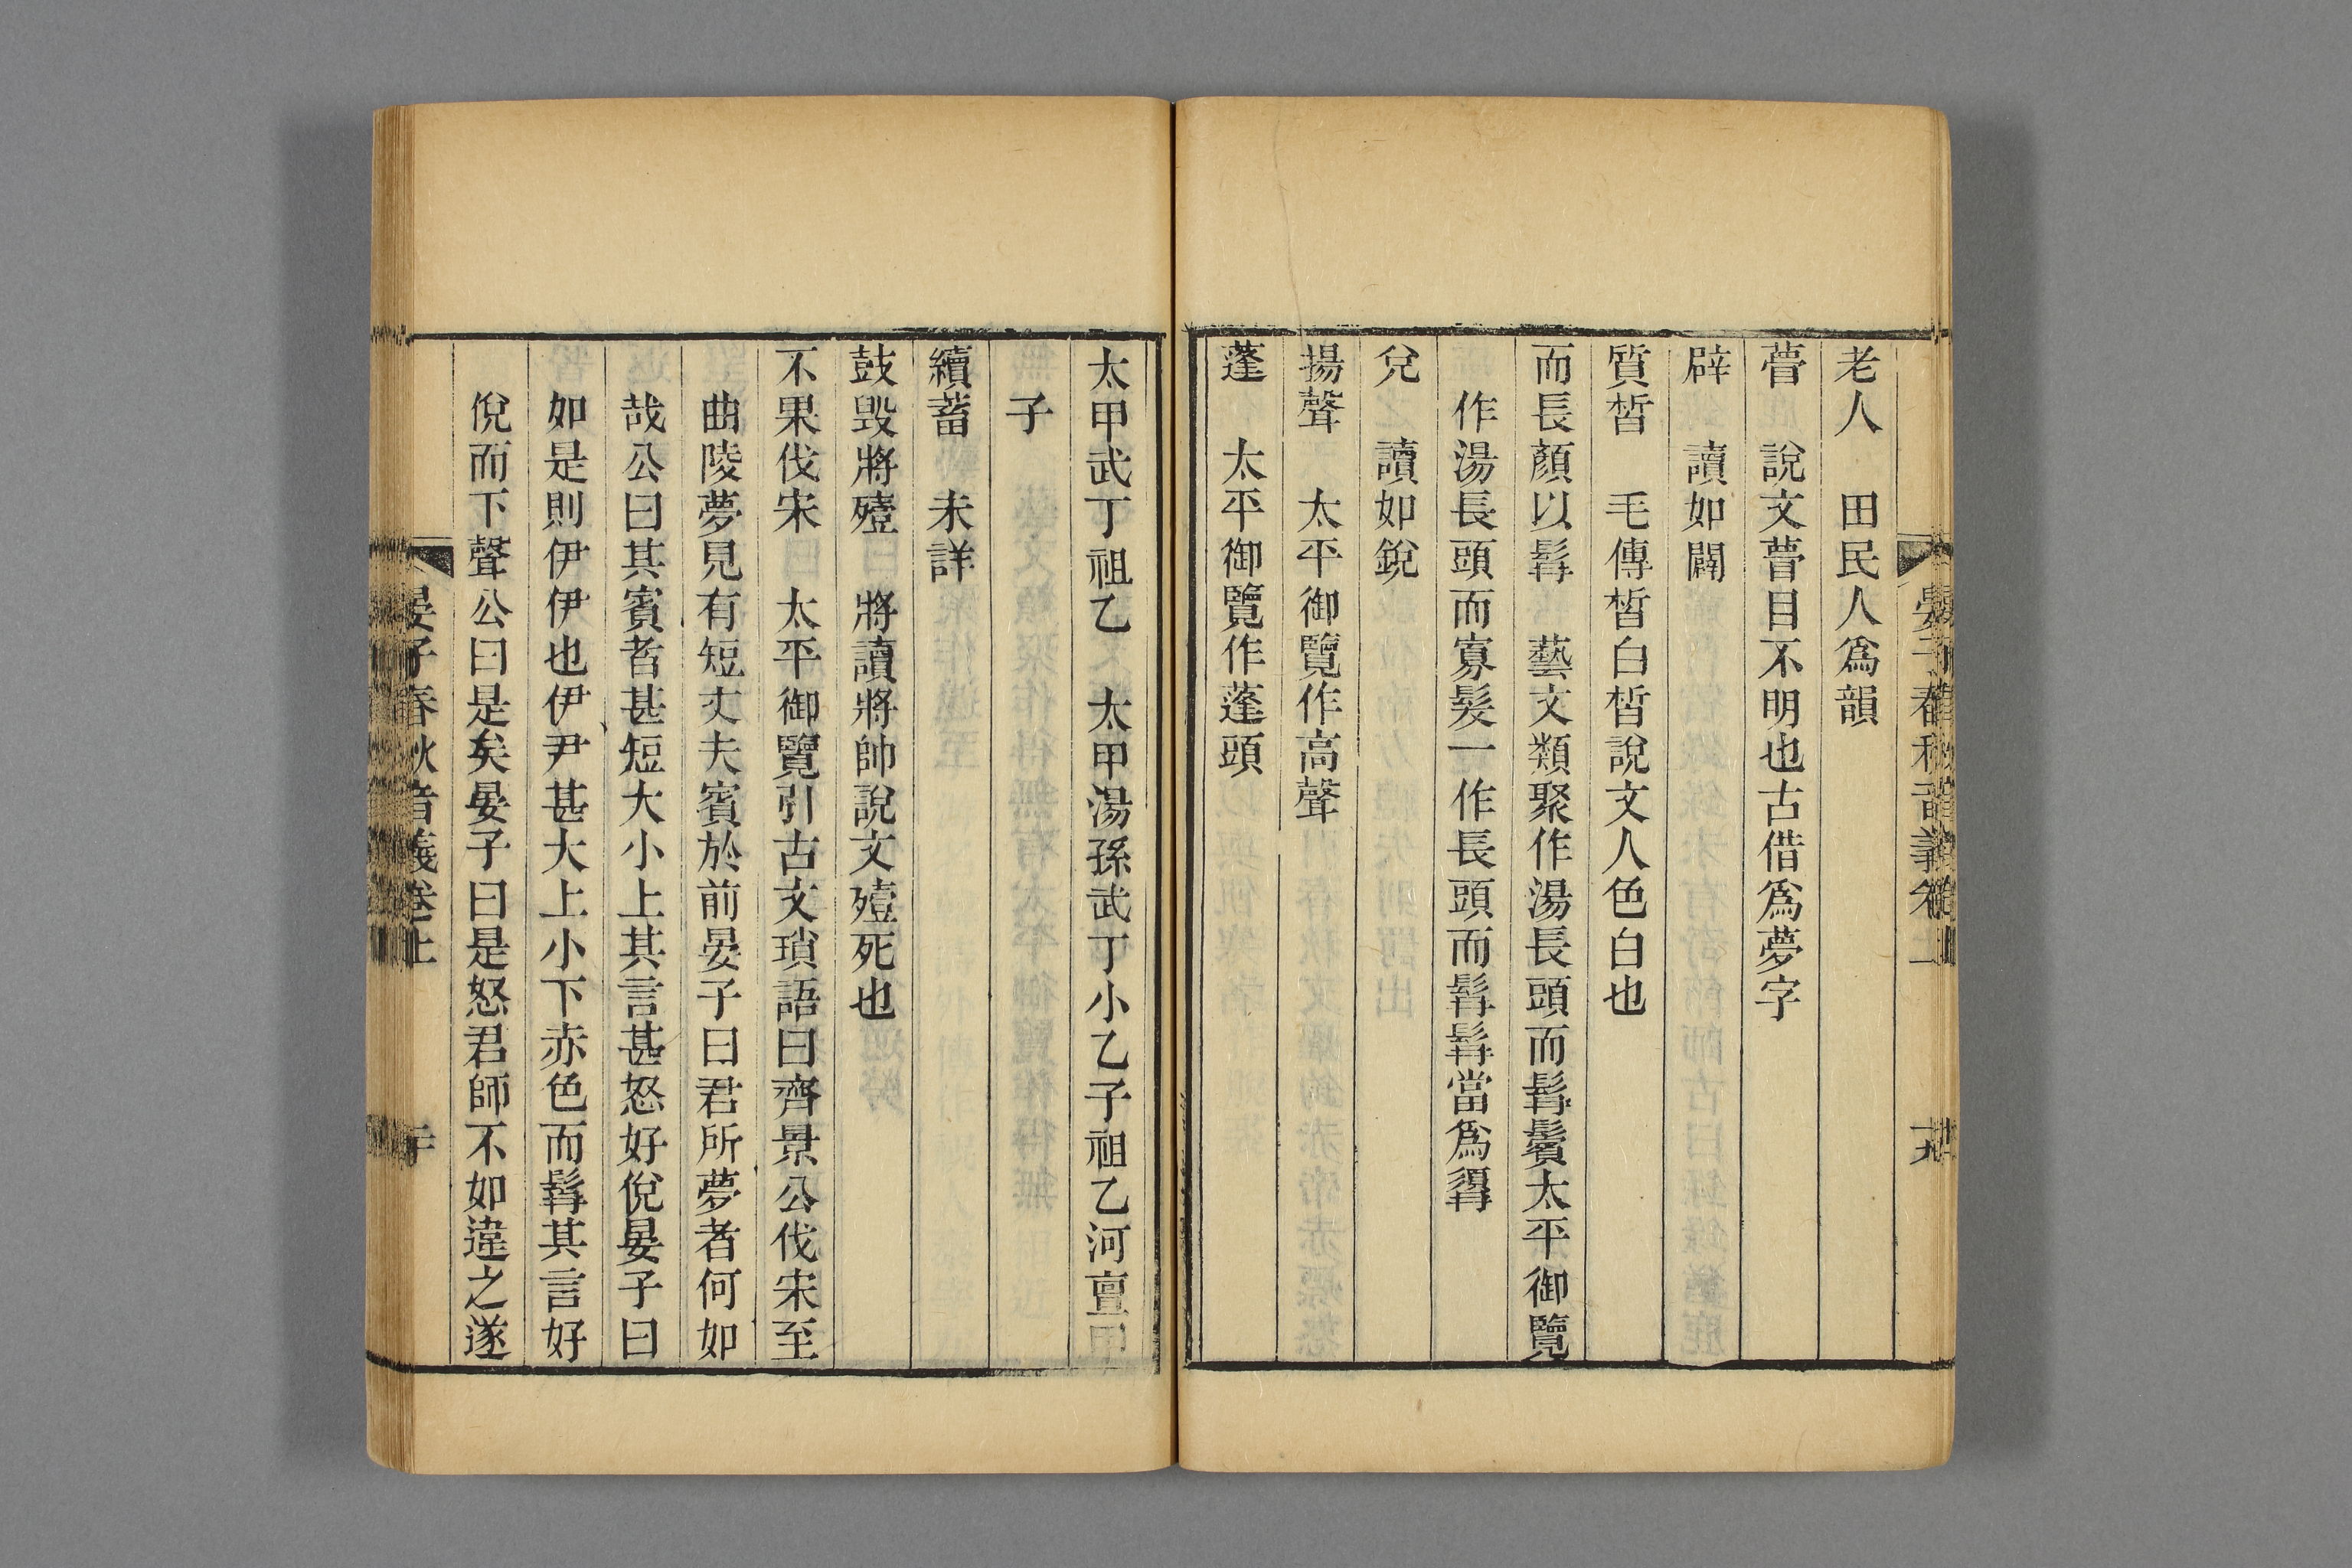 老人　田民人爲韻
瞢　說文瞢目不明也古借爲夢字
辟　讀如闢
質皙　毛傳皙白皙說文人色白也
而長顏以髯　藝文類聚作湯長頭而髯鬢太平御覽
作湯長頭而寡髮一作長頭而髯髯當爲䫇
兌　讀如銳
揚聲　太平御覽作高聲
蓬　太平御覽作蓬頭
太甲武丁祖乙　太甲湯孫武丁小乙子祖乙河亶甲
子
續蓄　未詳
鼓毀將殪　將讀將帥說文殪死也
不果伐宋　太平御覽引古文瑣語曰齊景公伐宋至
曲陵夢見有短丈夫賓於前晏子曰君所夢者何如
哉公曰其賓者甚短大小上其言甚怒好俛晏子曰
如是則伊伊也伊尹甚大上小下赤色而髯其言好
俛而下聲公曰是矣晏子曰是怒君師不如違之遂
晏子春秋音義卷上